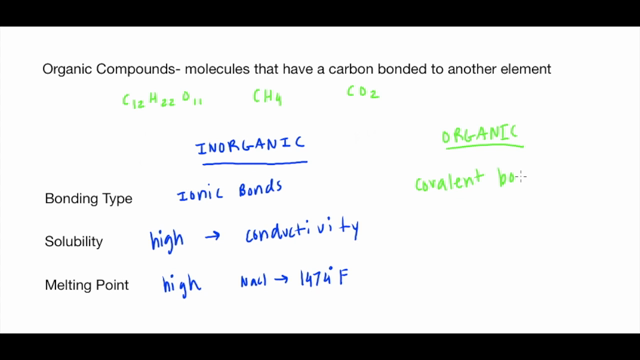 Organic Compounds- molecules that have a carbon bonded to another element
C12H22O11 CH4 CO2
INORGANIC ORGANIC
Bonding Type Ionic Bonds covalent bo
Solubility high → conductivity
Melting Point high NaCl → 1474°F